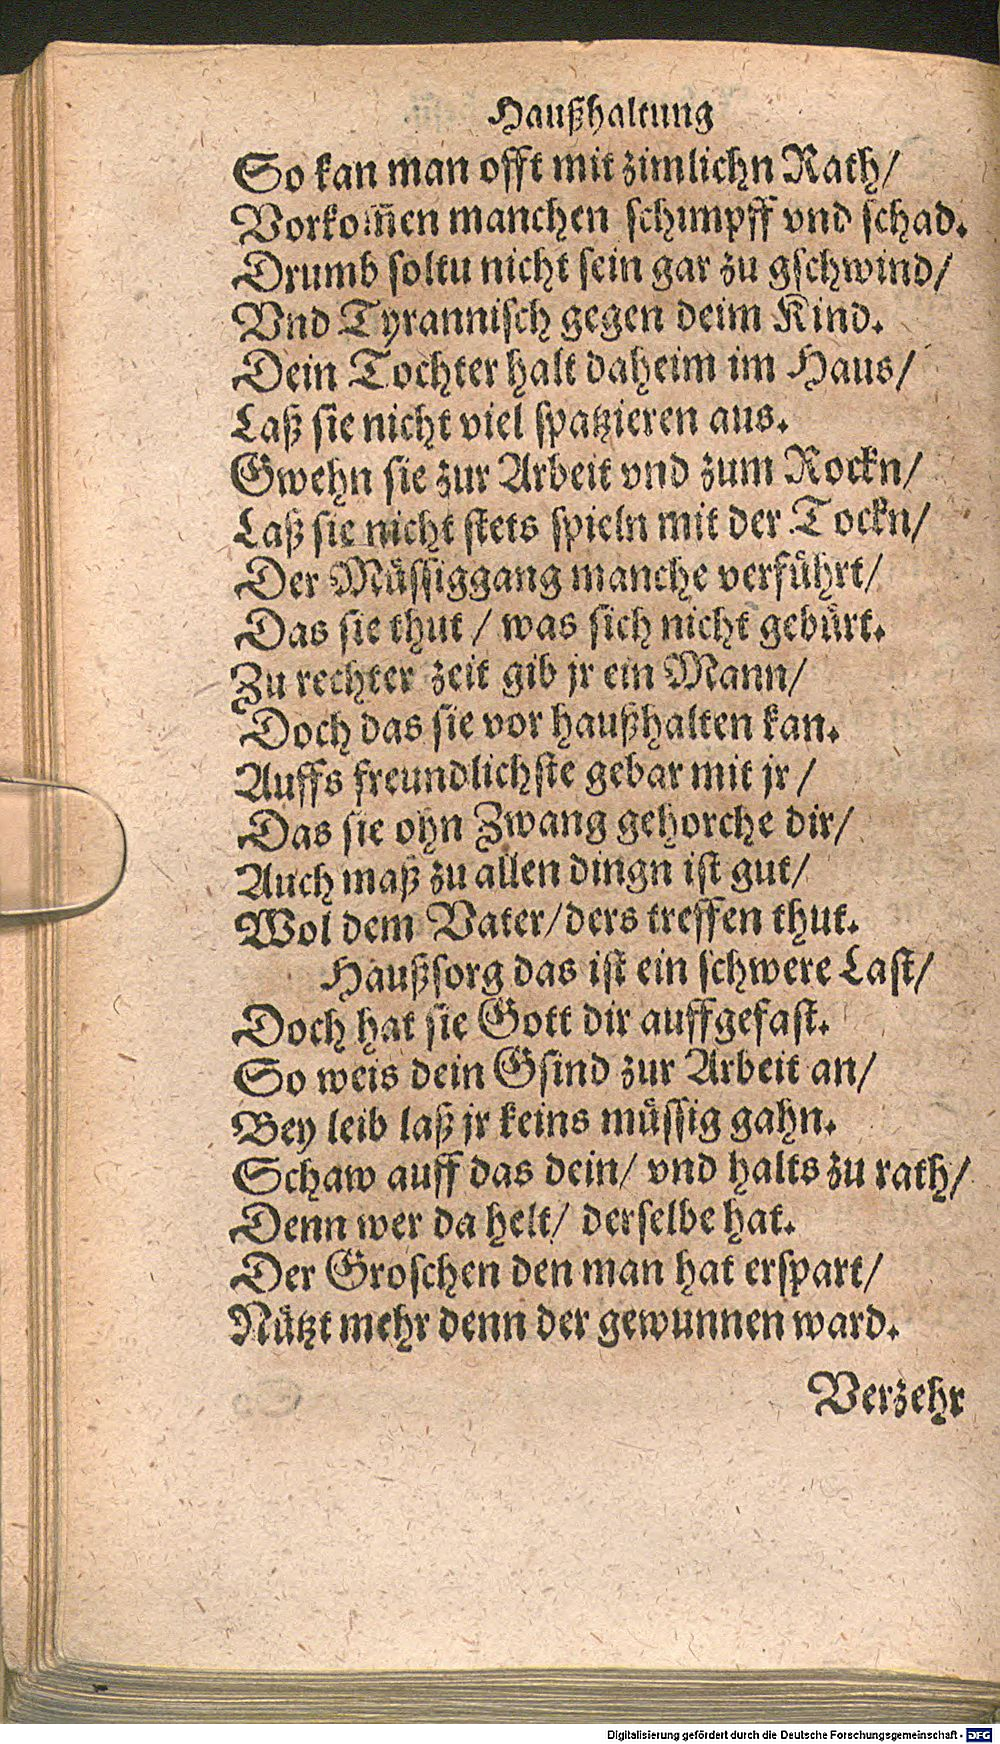 Haußhaltung
So kan man offt mit zimlichn Rath/
Vorkom̃en manchen schimpff vnd schad.
Drumb soltu nicht sein gar zu gschwind/
Vnd Tyrannisch gegen deim Kind.
Dein Tochter halt daheim im Haus/
Laß sie nicht viel spatzieren aus.
Gwehn sie zur Arbeit vnd zum Rockn/
Laß sie nicht stets spieln mit der Tockn/
Der Müssiggang manche verführt/
Das sie thut / was sich nicht gebürt.
Zu rechter zeit gib jr ein Mann/
Doch das sie vor haußhalten kan.
Auffs freundlichste gebar mit jr /
Das sie ohn Zwang gehorche dir/
Auch maß zu allen dingn ist gut/
Wol dem Vater/ders treffen thut.
Haußsorg das ist ein schwere Last/
Doch hat sie Gott dir auffgefast.
So weis dein Gsind zur Arbeit an/
Bey leib laß jr keins müssig gahn.
Schaw auff das dein/ vnd halts zu rath/
Denn wer da helt/ derselbe hat.
Der Groschen den man hat erspart/
Nützt mehr denn der gewunnen ward.
Verzehr
Digitalisierung gefördert durch die Deutsche Forschungsgemeinschaft - DFG